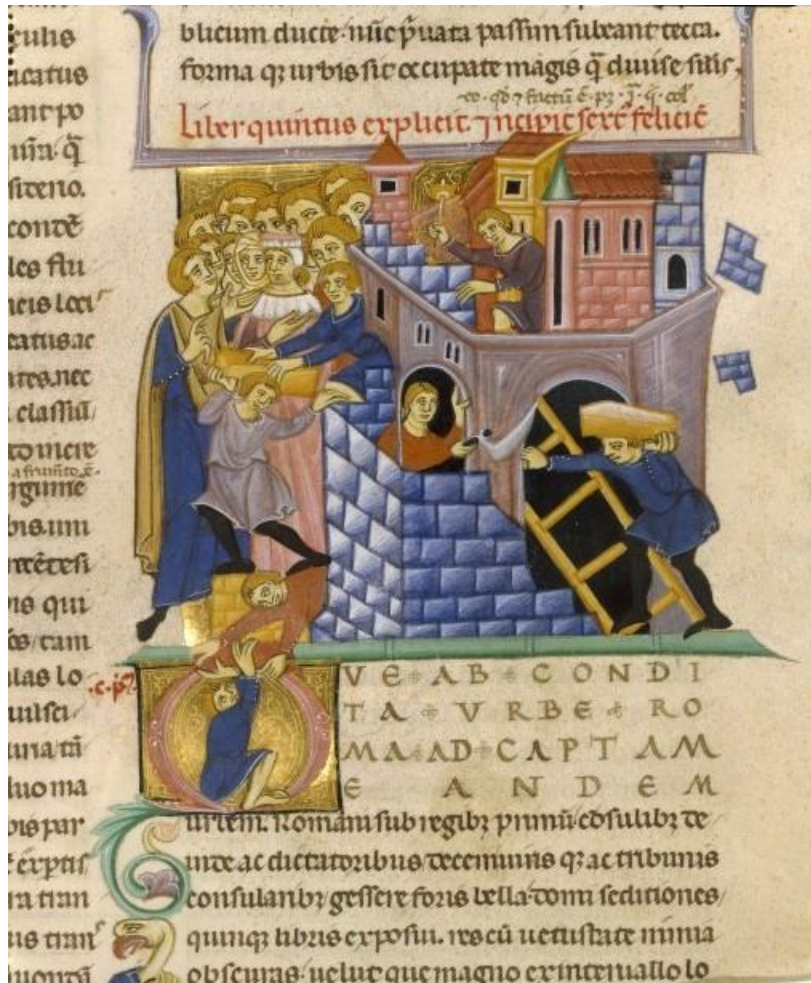 culis
icatus
ant po
siteno.
contē
les flu
neis loci
eatus ac
ates. nec
classiū/
rgume
bis. um
ns qui
os/ tam
alas lo
uulsci.
una tñ
duo ma
bis par
t exptis
ra tran
us tran
blicum ducte. nūc p̄uata passim subeant tecta.
forma qꝫ urbis sit occupate magis q̄ diuise silis,
Liber quintus explicit. ⁊ncipit sext̄ felicit̄
.c. p̄.
VE AB CONDI
TA VRBE RO
MA AD CAPTAM
EANDEM
urbem. Romani sub regibꝫ primū cōsulibꝫ de
inde ac dictatoribus decemuiris qꝫ ac tribunis
consularibꝫ gessere foris bella. domi seditiones/
quinqꝫ libris exposui. res cū uetustate nimia
obscuras. uelut que magno ex interuallo lo